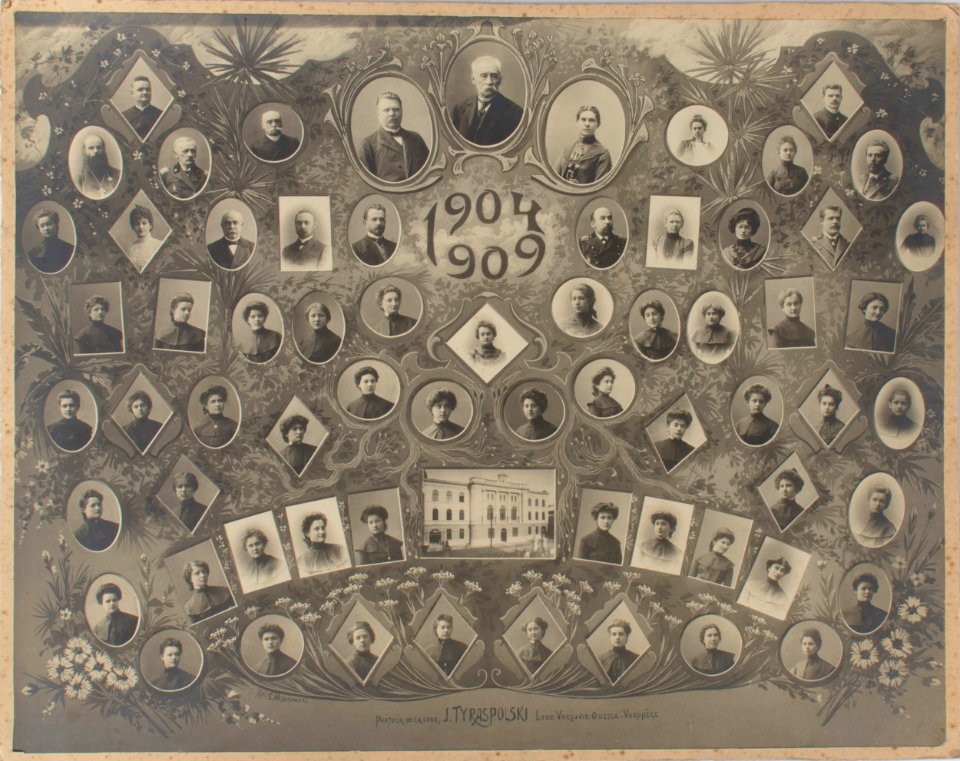 1904
1909
Photogr. de la cour, J. TYRASPOLSKI Lodz-Varsovie-Odessa-Voronèse